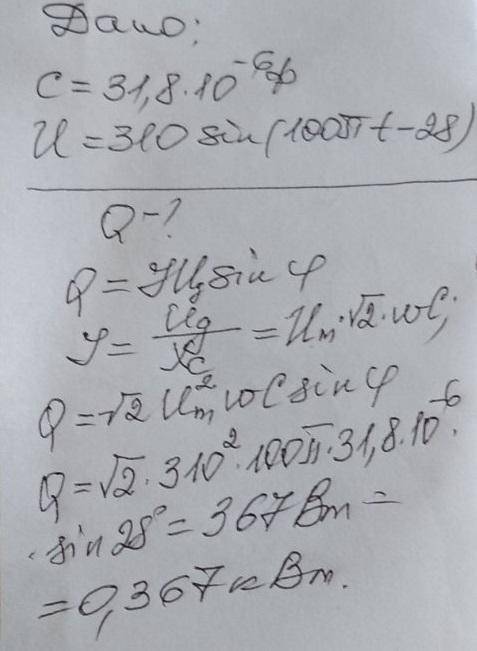 Дано:
C = 31,8·10⁻⁶ ф
U = 310 sin(100πt - 28)
Q - ?
Q = IUg sin φ
I = Ug/Xc = Um·√2·ωC;
Q = √2 Um² ωC sin φ
Q = √2·310²·100π·31,8·10⁻⁶·
· sin 28° = 367 Вт =
= 0,367 кВт.